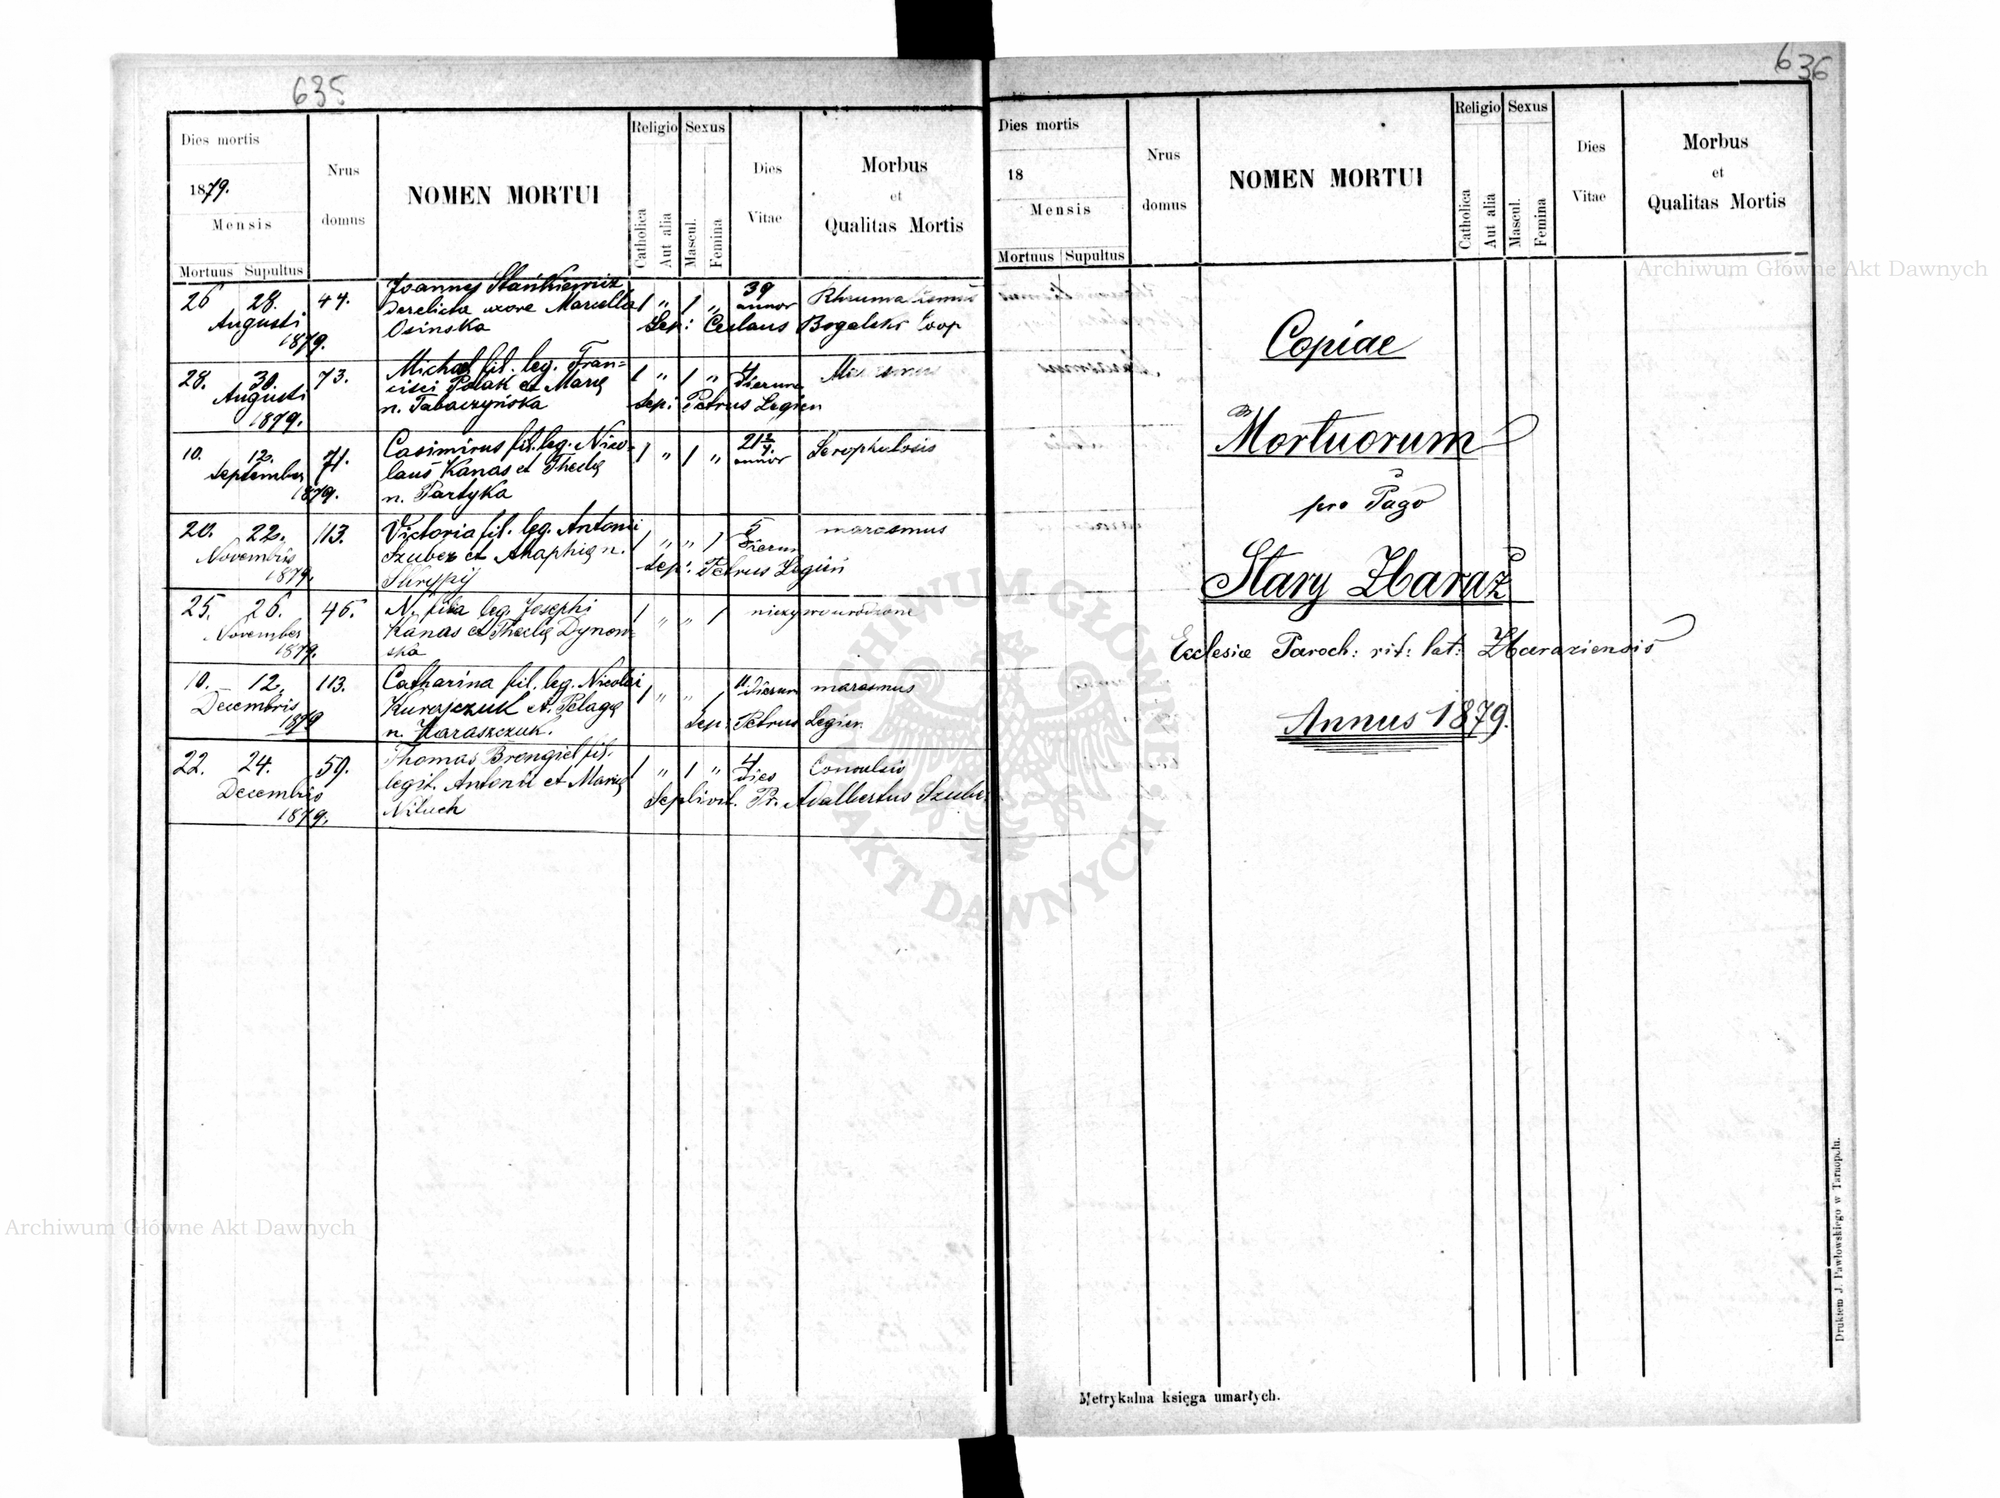 635
Dies mortis
1879.
Mensis
Mortuus Supultus
Nrus
domus
NOMEN MORTUI
Religio
Catholica
Aut alia
Sexus
Mascul.
Femina
Dies
Vitae
Morbus
et
Qualitas Mortis
26 28. Augusti 1879.
44.
Joannes Stańkiewicz
derelicta uxore Marcella
Osinska
1 " 1 "
39
annor
Rheumatismus
Sep: Ceslaus Bogalski Coop
28. 30. Augusti 1879.
73.
Michael fil. leg. Fran-
cisci Polak et Marię
n. Tabaczyńska
1 " 1 "
4
dierum
Sep: Petrus Legien
10. 12. September 1879.
71.
Casimirus fil. leg. Nico-
laus Kanas et Theclę
n. Partyka
1 " 1 "
annor
Scrophulosis
20. 22. Novembris 1879.
113.
Victoria fil. leg. Antonii
Szuber et Ahaphię n.
1 " " 1
5
dierum
marasmus
Sep: Petrus Legień
25. 26. November 1879.
46.
N. filia leg. Josephi
Kanas et Theclę Dynow-
ska
1 " " 1
nieżywo urodzone
10. 12. Decembris 1879
113.
Catharina fil. leg. Nicolai
et Pelagę
n. Haraszczuk.
1 " " 1
11 dierum
marasmus
Sep: Petrus Legien
22. 24. Decembris 1879.
59.
Thomas Brengiel fil.
legit. Antonii et Marię
Niluch
1 " 1 "
4
dies
Convulsio
Sepelivit. Pr. Adalbertus Szuber
636
Dies mortis
18
Mensis
Mortuus Supultus
Nrus
domus
NOMEN MORTUI
Religio
Catholica
Aut alia
Sexus
Mascul.
Femina
Dies
Vitae
Morbus
et
Qualitas Mortis
Copiae
Mortuorum
pro Pago
Stary Zbaraż
Ecclesiæ Paroch: rit: lat: Zbaraziensis
Annus 1879.
Metrykalna księga umarłych.
Drukiem J. Pawłowskiego w Tarnopolu.
Archiwum Główne Akt Dawnych
Archiwum Główne Akt Dawnych
ARCHIWUM GŁÓWNE AKT DAWNYCH